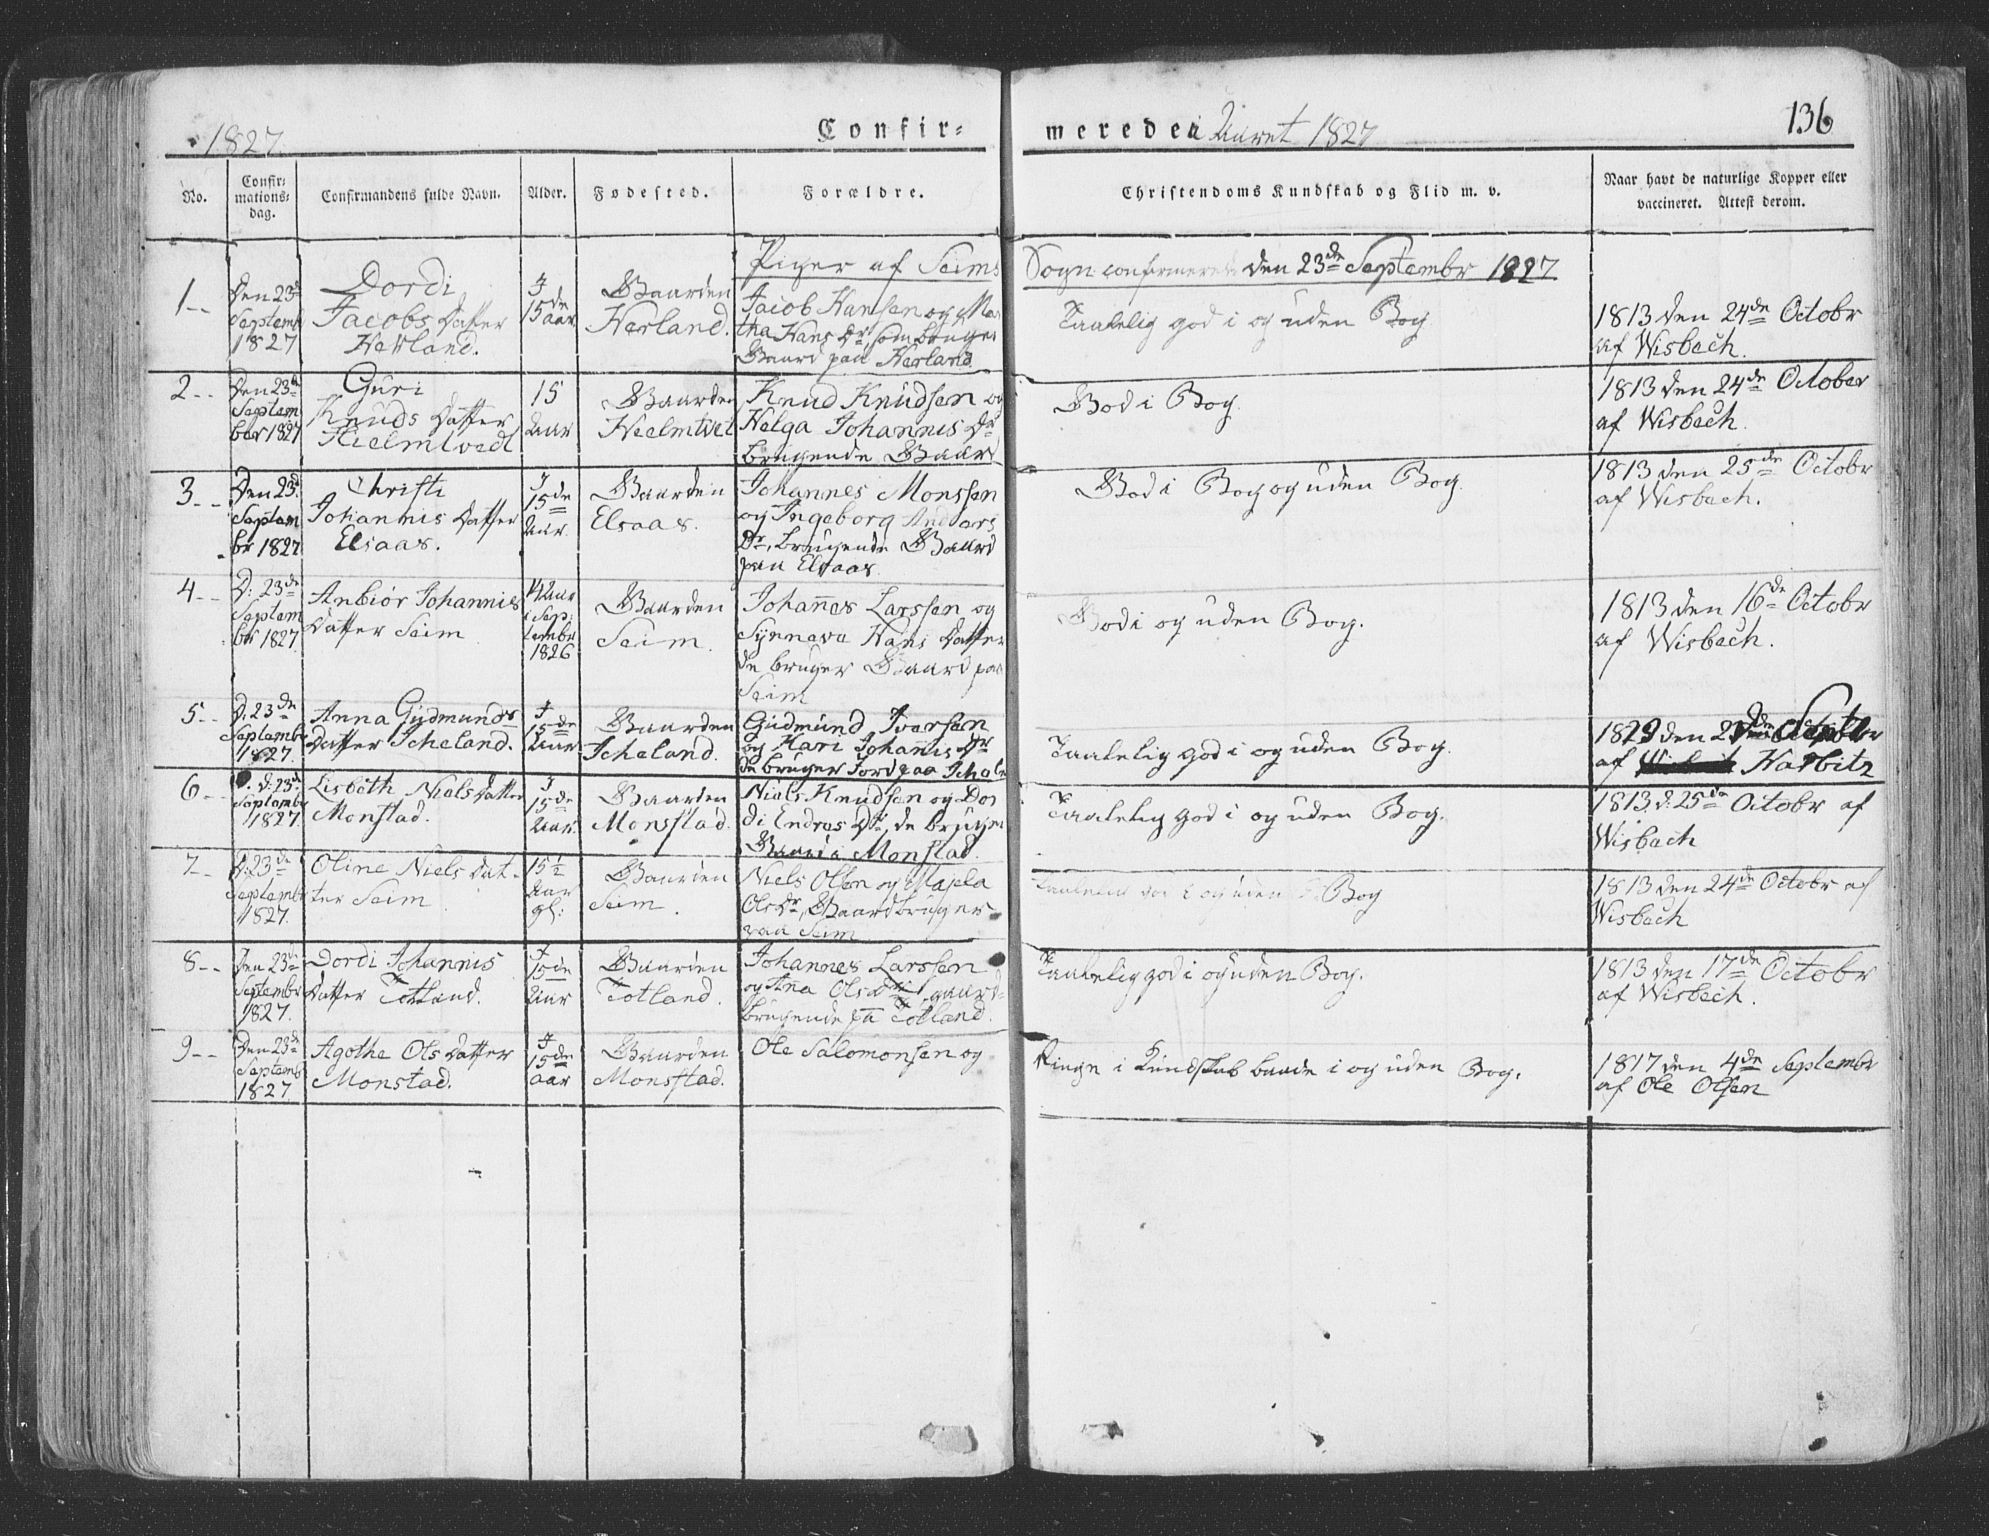 1827. Confir= merede i Aaret 1827 136
No. Confir= mations= dag. Confirmandens fulde Navn. Alder. Fødested. Forældre. Christendoms Kundskab og Flid m. v. Naar havt de naturlige Kopper eller vaccineret. Attest derom.
Piger af Seims Sogn confirmerede den 23de Septembr 1827
1-- Den 23de Septemb 1827
Dordi
Jacobs Datter
Herland.
I 15de aar
Gaarden
Herland.
Jacob Hansen og Mar
tha Hans Dr, som bruger
Gaard paa Herland
Taalelig god i og uden Bog
1813 den 24de Octobr
af Wisbech.
2-- Den 23de Septem ber 1827
Guri
Knuds Datter
Hielmtvedt
15 Aar
Gaarden
Heelmtvet
Knud Knudsen og
Helga Johannis Dr
brugende Gaard
God i Bog.
1813 den 24de October
af Wisbech.
3-- Den 23d Septem br 1827
Christi
Johannis Datter
Elsaas.
I 15de Aar.
Gaarden
Elsaas.
Johannes Monssen
og Ingeborg Anders
Dr, brugende Gaard
paa Elsaas.
God i Bog og uden Bog.
1813 den 25de Octobr
af Wisbech.
4-- D: 23de Septem br 1827.
Anbiør Johannis
Datter Seim
14 Aar i Sep: tembr 1826
Gaarden
Seim.
Johañes Larssen og
Synneva Hans Datter
de bruger Gaard paa
Seim
God i og uden Bog.
1813 den 16de Octobr
af Wisbech.
5-- D. 23de Septembr 1827.
Anna Gudmunds
Datter Icheland.
I 15de Aar
Gaarden
Icheland.
Gudmund Iversen
og Kari Johanis Dr
de bruger Jord paa Ichel
Taalelig god i og uden Bog.
af Harbitz
6-- d. 23de Septembr 1827.
Lisbeth Niels Datter
Monstad.
I 15de Aar.
Gaarden
Monstad.
Niels Knudsen og Dor
di Endres Dr, de bruger
Gaard i Monstad.
Taalelig god i og uden Bog.
1813. d: 25de Octobr af
Wisbech
7-- D: 23de Septembr 1827.
Oline Niels Dat-
ter Seim
15½ Aar gl:
Gaarden
Seim.
Niels Olsen og Magla
Ols Dr, Gaardbruger
paa Seim
Taalelig god i og uden Bog
1813 den 24de Octobr af
Wisbech
8-- Den 23de Septembr 1827.
Dordi Johannis
Datter Totland.
I 15de Aar
Gaarden
Totland.
Johannes Larssen
og Aña Ols Dr, gaard-
brugende pa Totland.
Taalelig god i og uden Bog.
1813 den 17de Octobr
af Wisbech.
9-- Den 23de Septemb 1827
Agothe Ols Datter
Monstad.
I 15de aar
Gaarden
Monstad.
Ole Salomonsen og
Ringe i Kundskab baade i og uden Bog.
1817 den 4de Septembr
af Ole Olsen